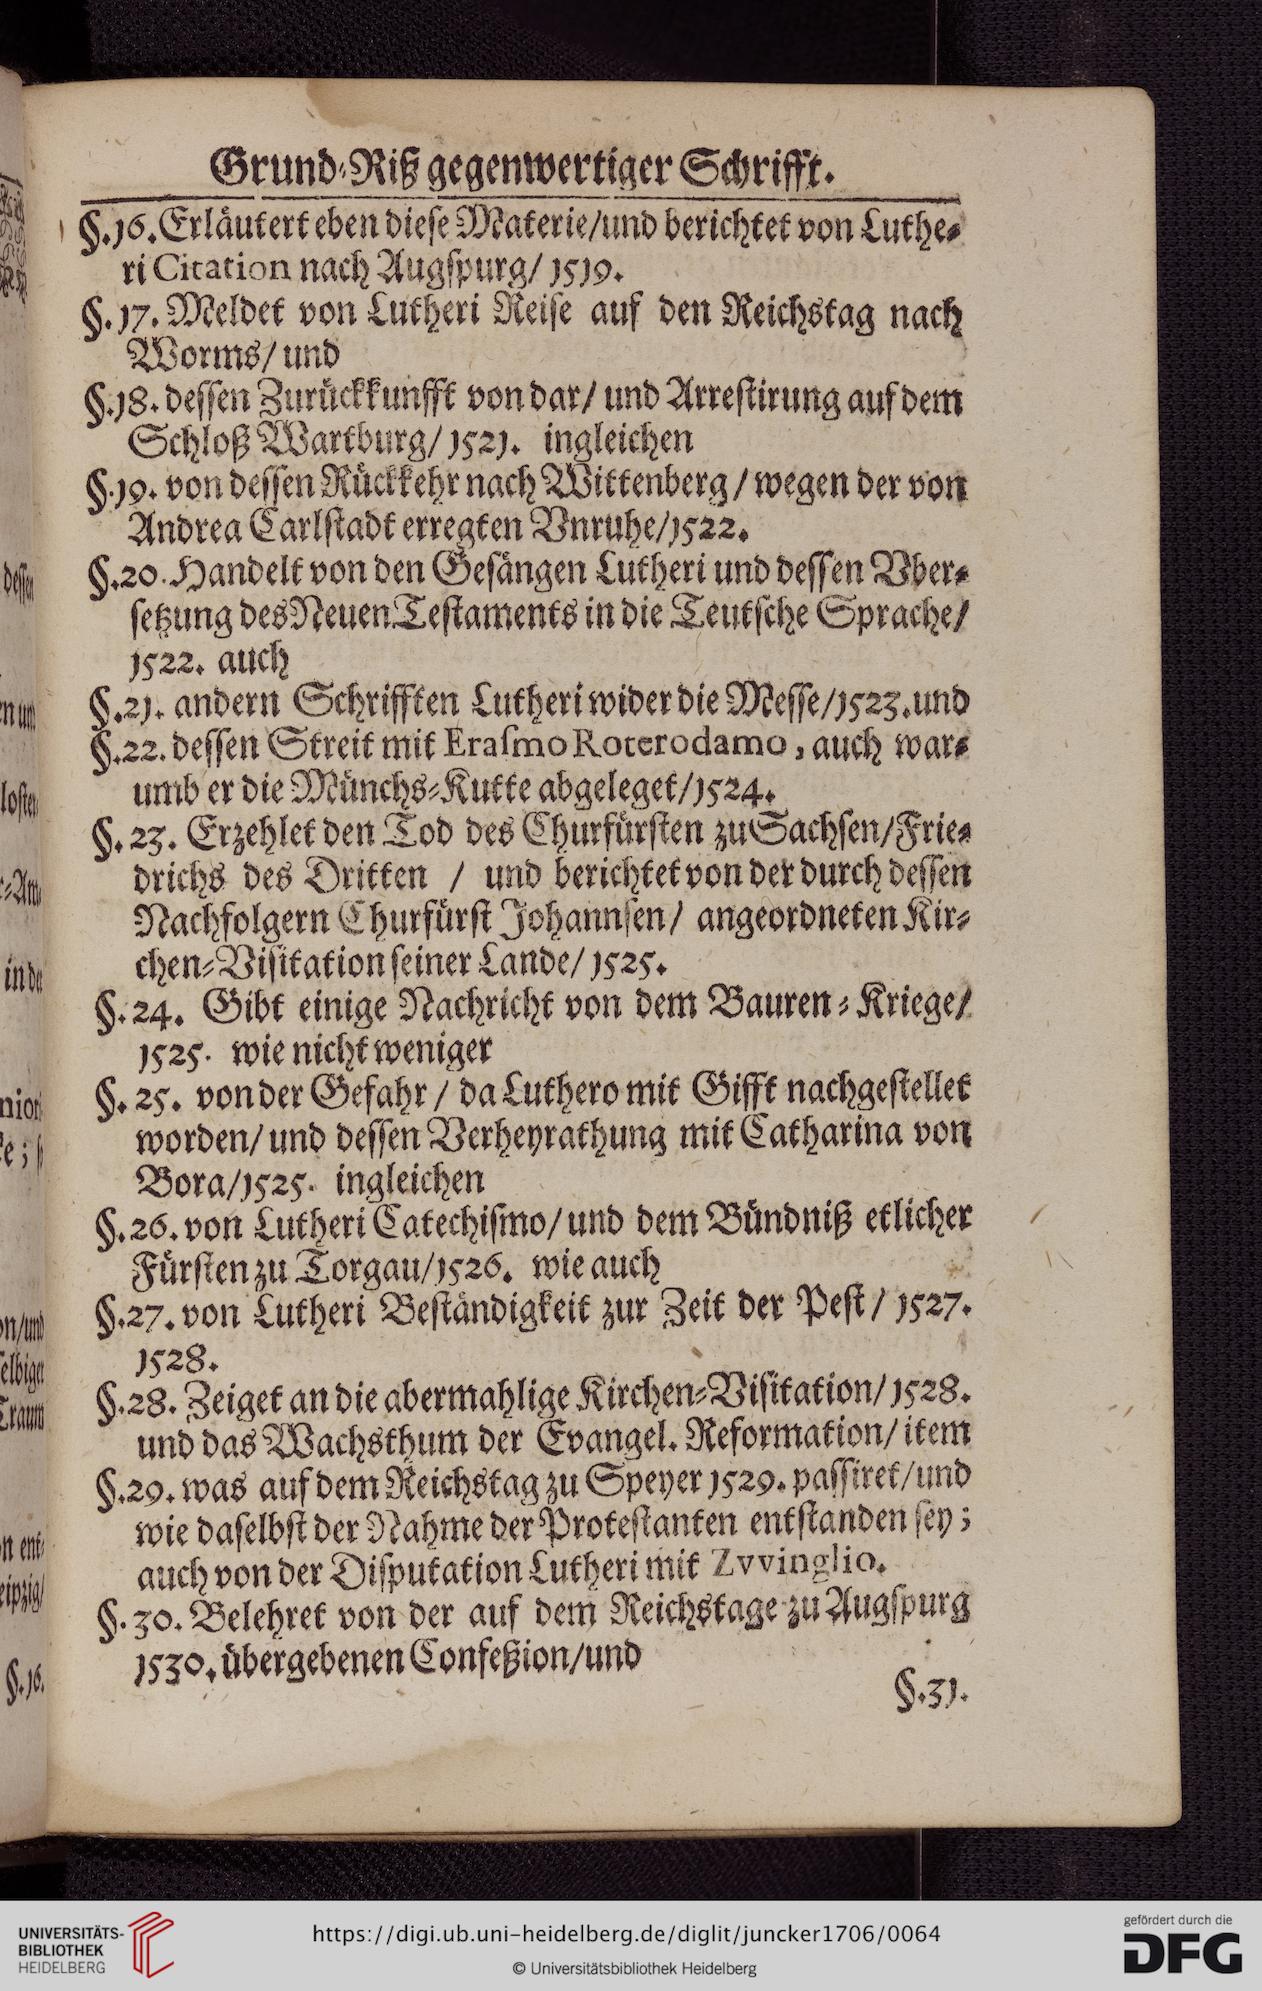 Grund-Riß gegenwertiger Schrifft.
§.16. Erläutert eben diese Materie/und berichtet von Luthe-
ri Citation nach Augspurg/ 1519.
§.17. Meldet von Lutheri Reise auf den Reichstag nach
Worms/ und
§.18. dessen Zurückkunfft von dar/ und Arrestirung auf dem
Schloß Wartburg/ 1521. ingleichen
§.19. von dessen Rückkehr nach Wittenberg/ wegen der von
Andrea Carlstadt erregten Vnruhe/1522.
§.20. Handelt von den Gesängen Lutheri und dessen Vber-
setzung des Neuen Testaments in die Teutsche Sprache/
1522. auch
§.21. andern Schrifften Lutheri wider die Messe/1523. und
§.22. dessen Streit mit Erasmo Roterodamo, auch war-
umb er die Münchs-Kutte abgeleget/1524.
§.23. Erzehlet den Tod des Churfürsten zu Sachsen/Frie-
drichs des Dritten / und berichtet von der durch dessen
Nachfolgern Churfürst Johannsen/ angeordneten Kir-
chen-Visitation seiner Lande/ 1525.
§.24. Gibt einige Nachricht von dem Bauren-Kriege/
1525. wie nicht weniger
§.25. von der Gefahr / da Luthero mit Gifft nachgestellet
worden/ und dessen Verheyrathung mit Catharina von
Bora/1525. ingleichen
§.26. von Lutheri Catechismo/ und dem Bündniß etlicher
Fürsten zu Torgau/1526. wie auch
§.27. von Lutheri Beständigkeit zur Zeit der Pest/ 1527.
1528.
§.28. Zeiget an die abermahlige Kirchen-Visitation/ 1528.
und das Wachsthum der Evangel. Reformation/ item
§.29. was auf dem Reichstag zu Speyer 1529. passiret/und
wie daselbst der Nahme der Protestanten entstanden sey;
auch von der Disputation Lutheri mit Zvvinglio.
§.30. Belehret von der auf dem Reichstage zu Augspurg
1530. übergebenen Confeßion/und
§.31.
UNIVERSITÄTS-
BIBLIOTHEK
HEIDELBERG
https://digi.ub.uni-heidelberg.de/diglit/juncker1706/0064
© Universitätsbibliothek Heidelberg
gefördert durch die
DFG